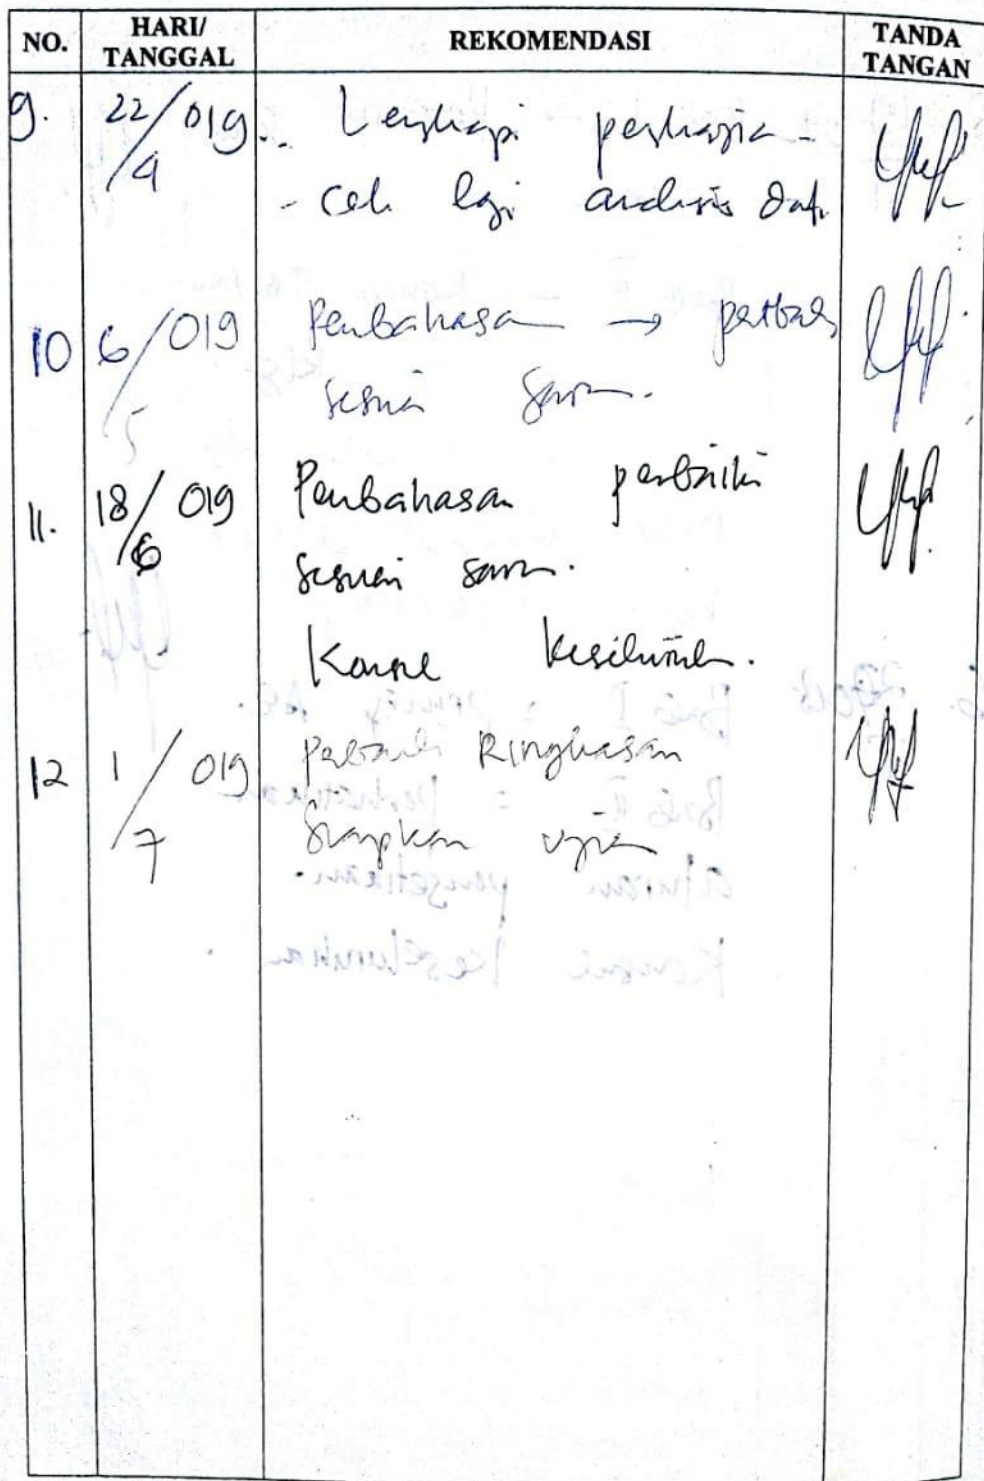 NO. HARI/ TANGGAL REKOMENDASI TANDA TANGAN
9. 22/4 019 - Lengkapi pengkajian
- Cek lagi analisis data
10 6/5 019 Pembahasan → perbaiki
sesuai saran.
11. 18/6 019 Pembahasan perbaiki
sesuai saran.
Konsul keseluruhan.
12 1/7 019 perbaiki Ringkasan
Siapkan ujian